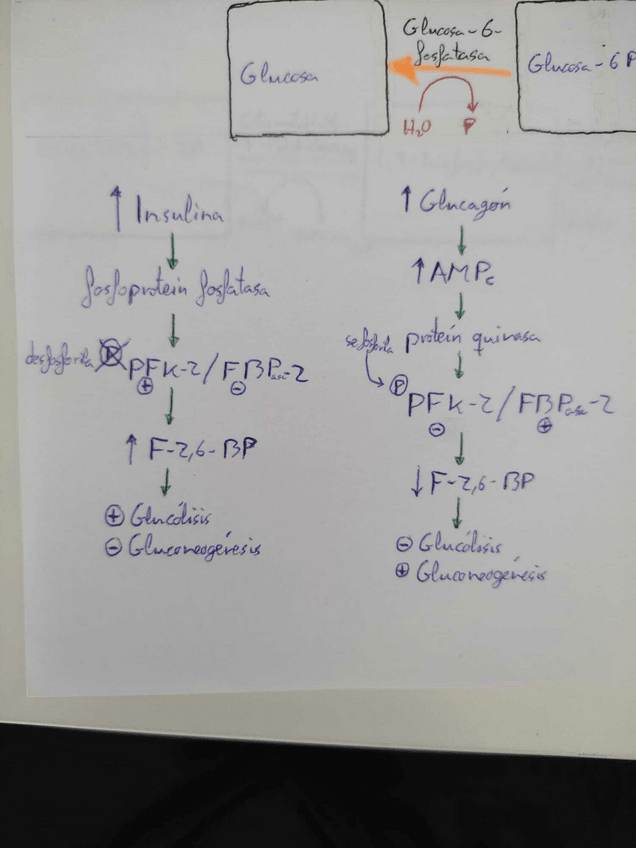 Glucosa
Glucosa-6-
fosfatasa
Glucosa-6P
H₂O
P
↑ Insulina
fosfoprotein fosfatasa
desfosforila P PFK-2/FBPasa-2
+ -
↑ F-2,6-BP
+ Glucólisis
- Gluconeogénesis
↑ Glucagón
↑ AMPc
protein quinasa
se fosforila
P
PFK-2/FBPasa-2
- +
↓ F-2,6-BP
- Glucólisis
+ Gluconeogénesis